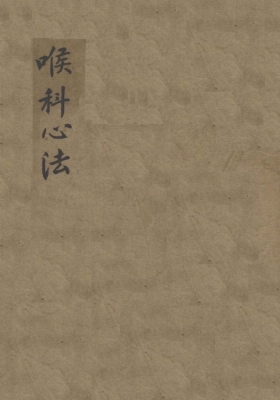 喉科心法